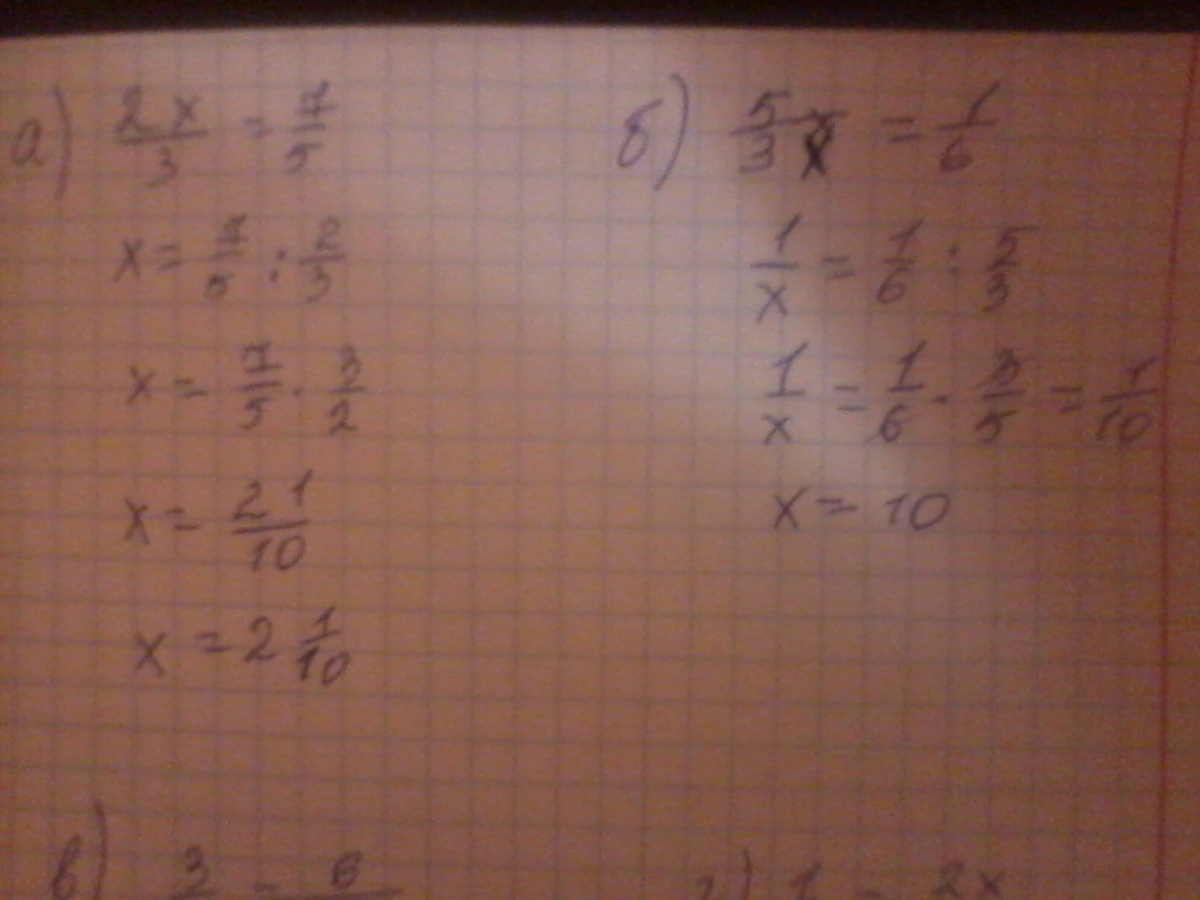 а) 2x/3 = 7/5
x = 7/5 : 2/3
x = 7/5 · 3/2
x = 21/10
x = 2 1/10
б) 5/3x = 1/6
1/x = 1/6 : 5/3
1/x = 1/6 · 3/5 = 1/10
x = 10
в) 3 = 6
г) 1 = 2x